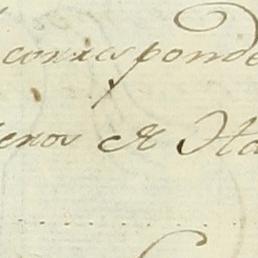 corresponde
enos de Ita